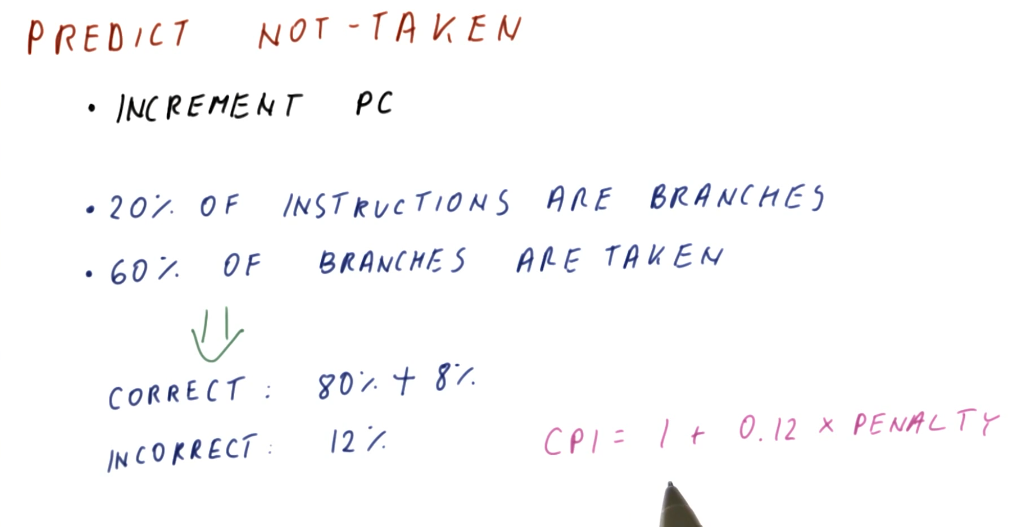 PREDICT NOT-TAKEN
• INCREMENT PC
• 20% OF INSTRUCTIONS ARE BRANCHES
• 60% OF BRANCHES ARE TAKEN
CORRECT: 80% + 8%
INCORRECT: 12%
CPI = 1 + 0.12 × PENALTY